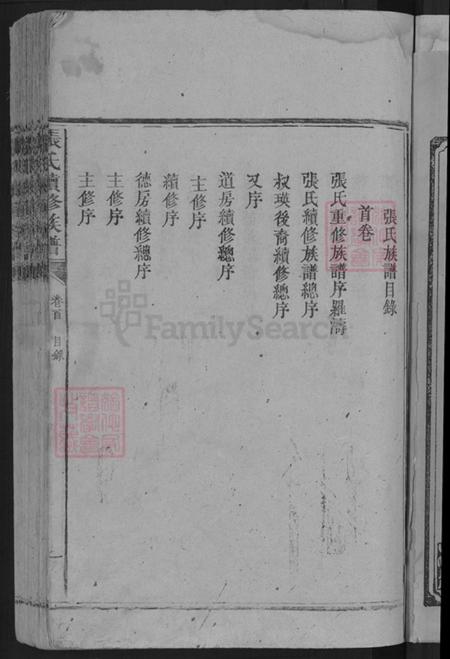 張氏族譜目錄
首卷
張氏重修族譜序羅濤
張氏續修族譜總序
叔瑛後裔續修總序
又序
道房續修總序
主修序
續修序
德房續修總序
主修序
主修序
張氏續修族譜
卷首 目錄
一
FamilySearch